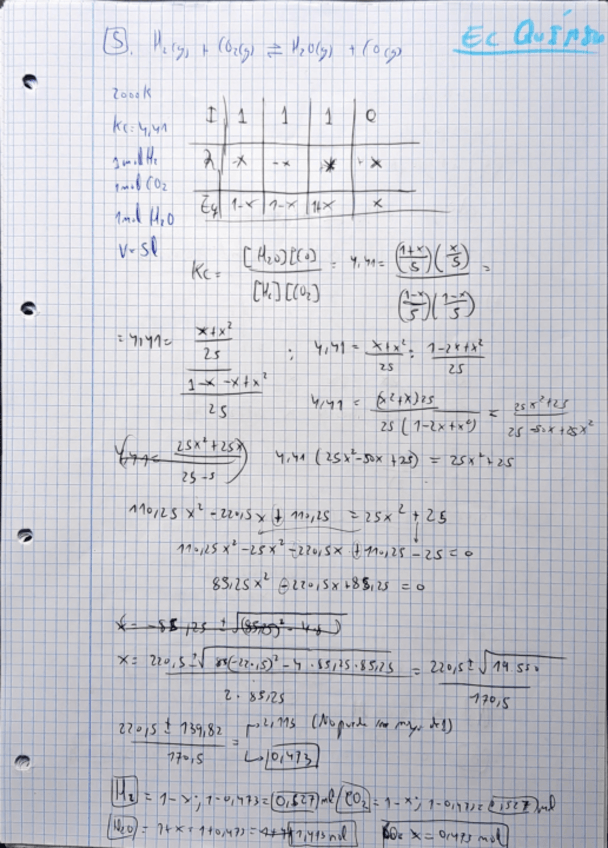 Ec Químico
5. H₂(g) + CO₂(g) ⇌ H₂O(g) + CO(g)
2000K
Kc = 4,41
1 mol H₂
1 mol CO₂
1 mol H₂O
V = 5l
I | 1 | 1 | 1 | 0
-x | -x | x | + x
Eq | 1-x | 1-x | 1+x | x
Kc = [H₂O][CO] / [H₂][CO₂] = 4,41 = (1+x/5)(x/5) / (1-x/5)(1-x/5) =
= 4,41 = (x+x²/25) / (1-x-x+x²/25) ; 4,41 = x+x²/25 : 1-2x+x²/25
4,41 = (x²+x)25 / 25(1-2x+x²) = 25x²+25 / 25-50x+25x²
4,41 = 25x²+25x / 25-5
4,41 (25x²-50x+25) = 25x²+25
110,25x² - 220,5x + 110,25 = 25x² + 25
110,25x² - 25x² - 220,5x + 110,25 - 25 = 0
85,25x² - 220,5x + 85,25 = 0
x = 220,5 ± √(-220,5)² - 4 · 85,25 · 85,25 / 2 · 85,25 = 220,5 ± √19.550 / 170,5
220,5 ± 139,82 / 170,5 = 2,113 (No puede ser may. de 1)
0,473
H₂ = 1-x; 1-0,473 = 0,527 mol / CO₂ = 1-x; 1-0,473 = 0,527 mol
H₂O = 1+x = 1+0,473 = 1,473 mol x = 0,473 mol